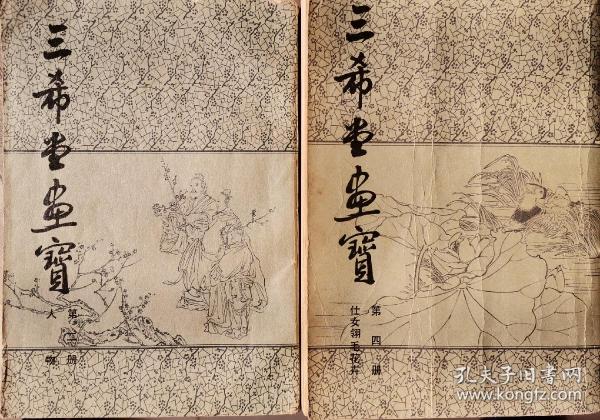 三希堂画寶
第二册
人物
三希堂画寶
第四册
仕女翎毛花卉
孔夫子旧书网
www.kongfz.com